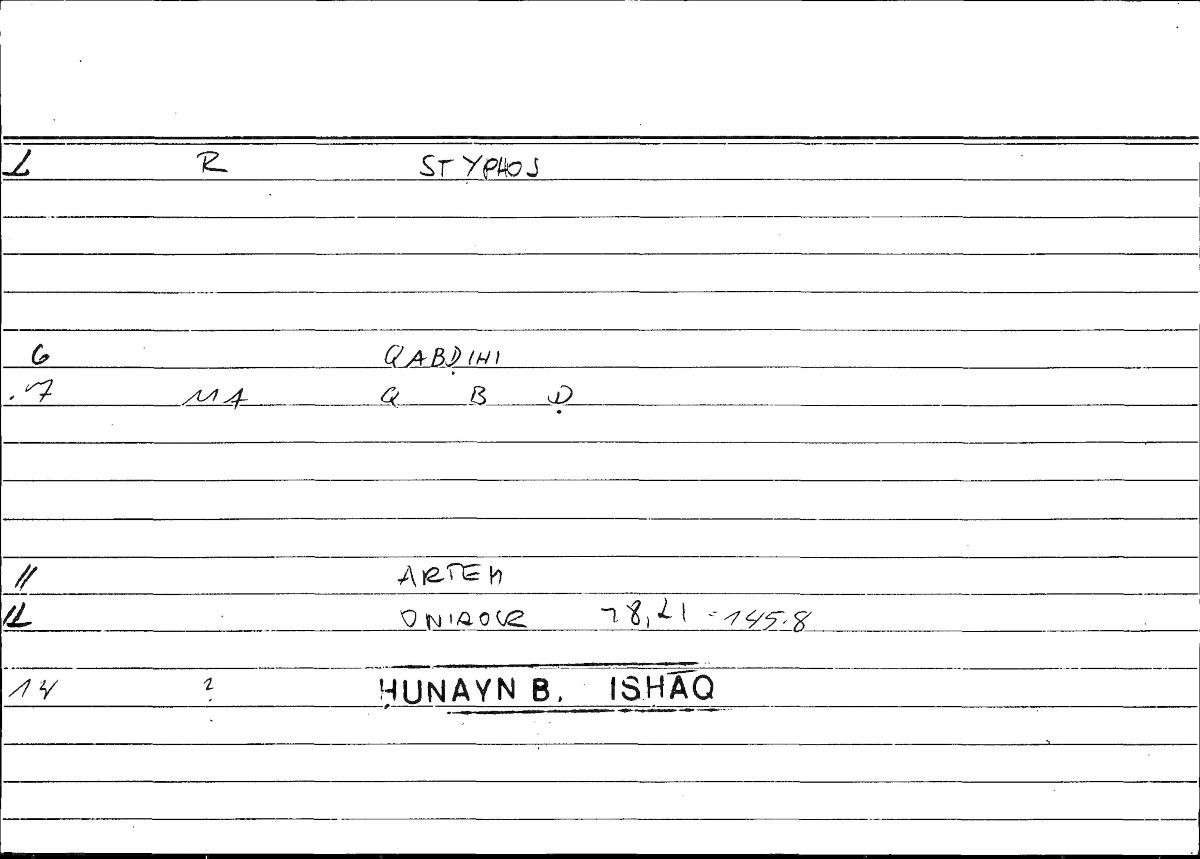 1 R STYPHOS
6 QABḌIHI
7 MA Q B Ḍ
11 ARTEM
12 ONIROCR 78,21 = 145.8
14 ? ḤUNAYN B. ISḤĀQ